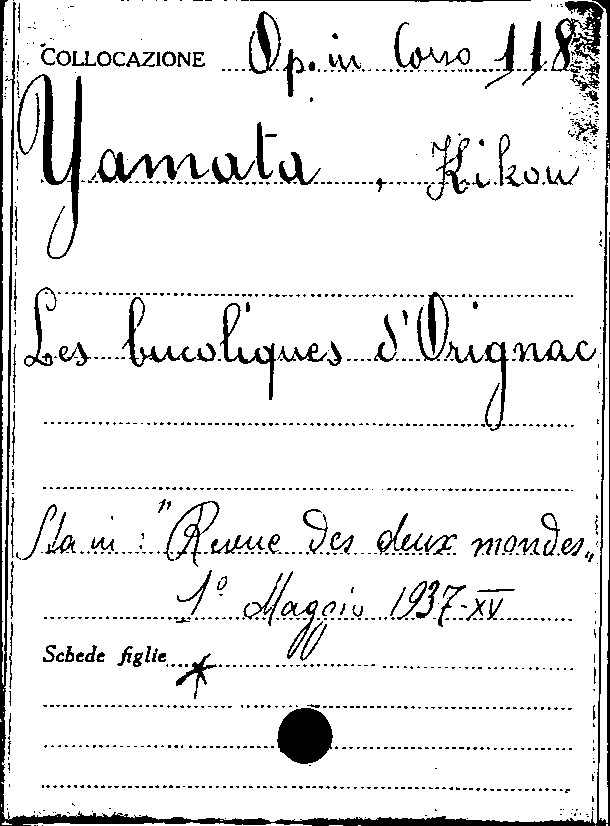 COLLOCAZIONE Op. in Corso 118
Yamata, Kikou
Les bucoliques d'Orignac
Sta in: "Revue des deux mondes„
1° Maggio 1937-XV
Schede figlie *